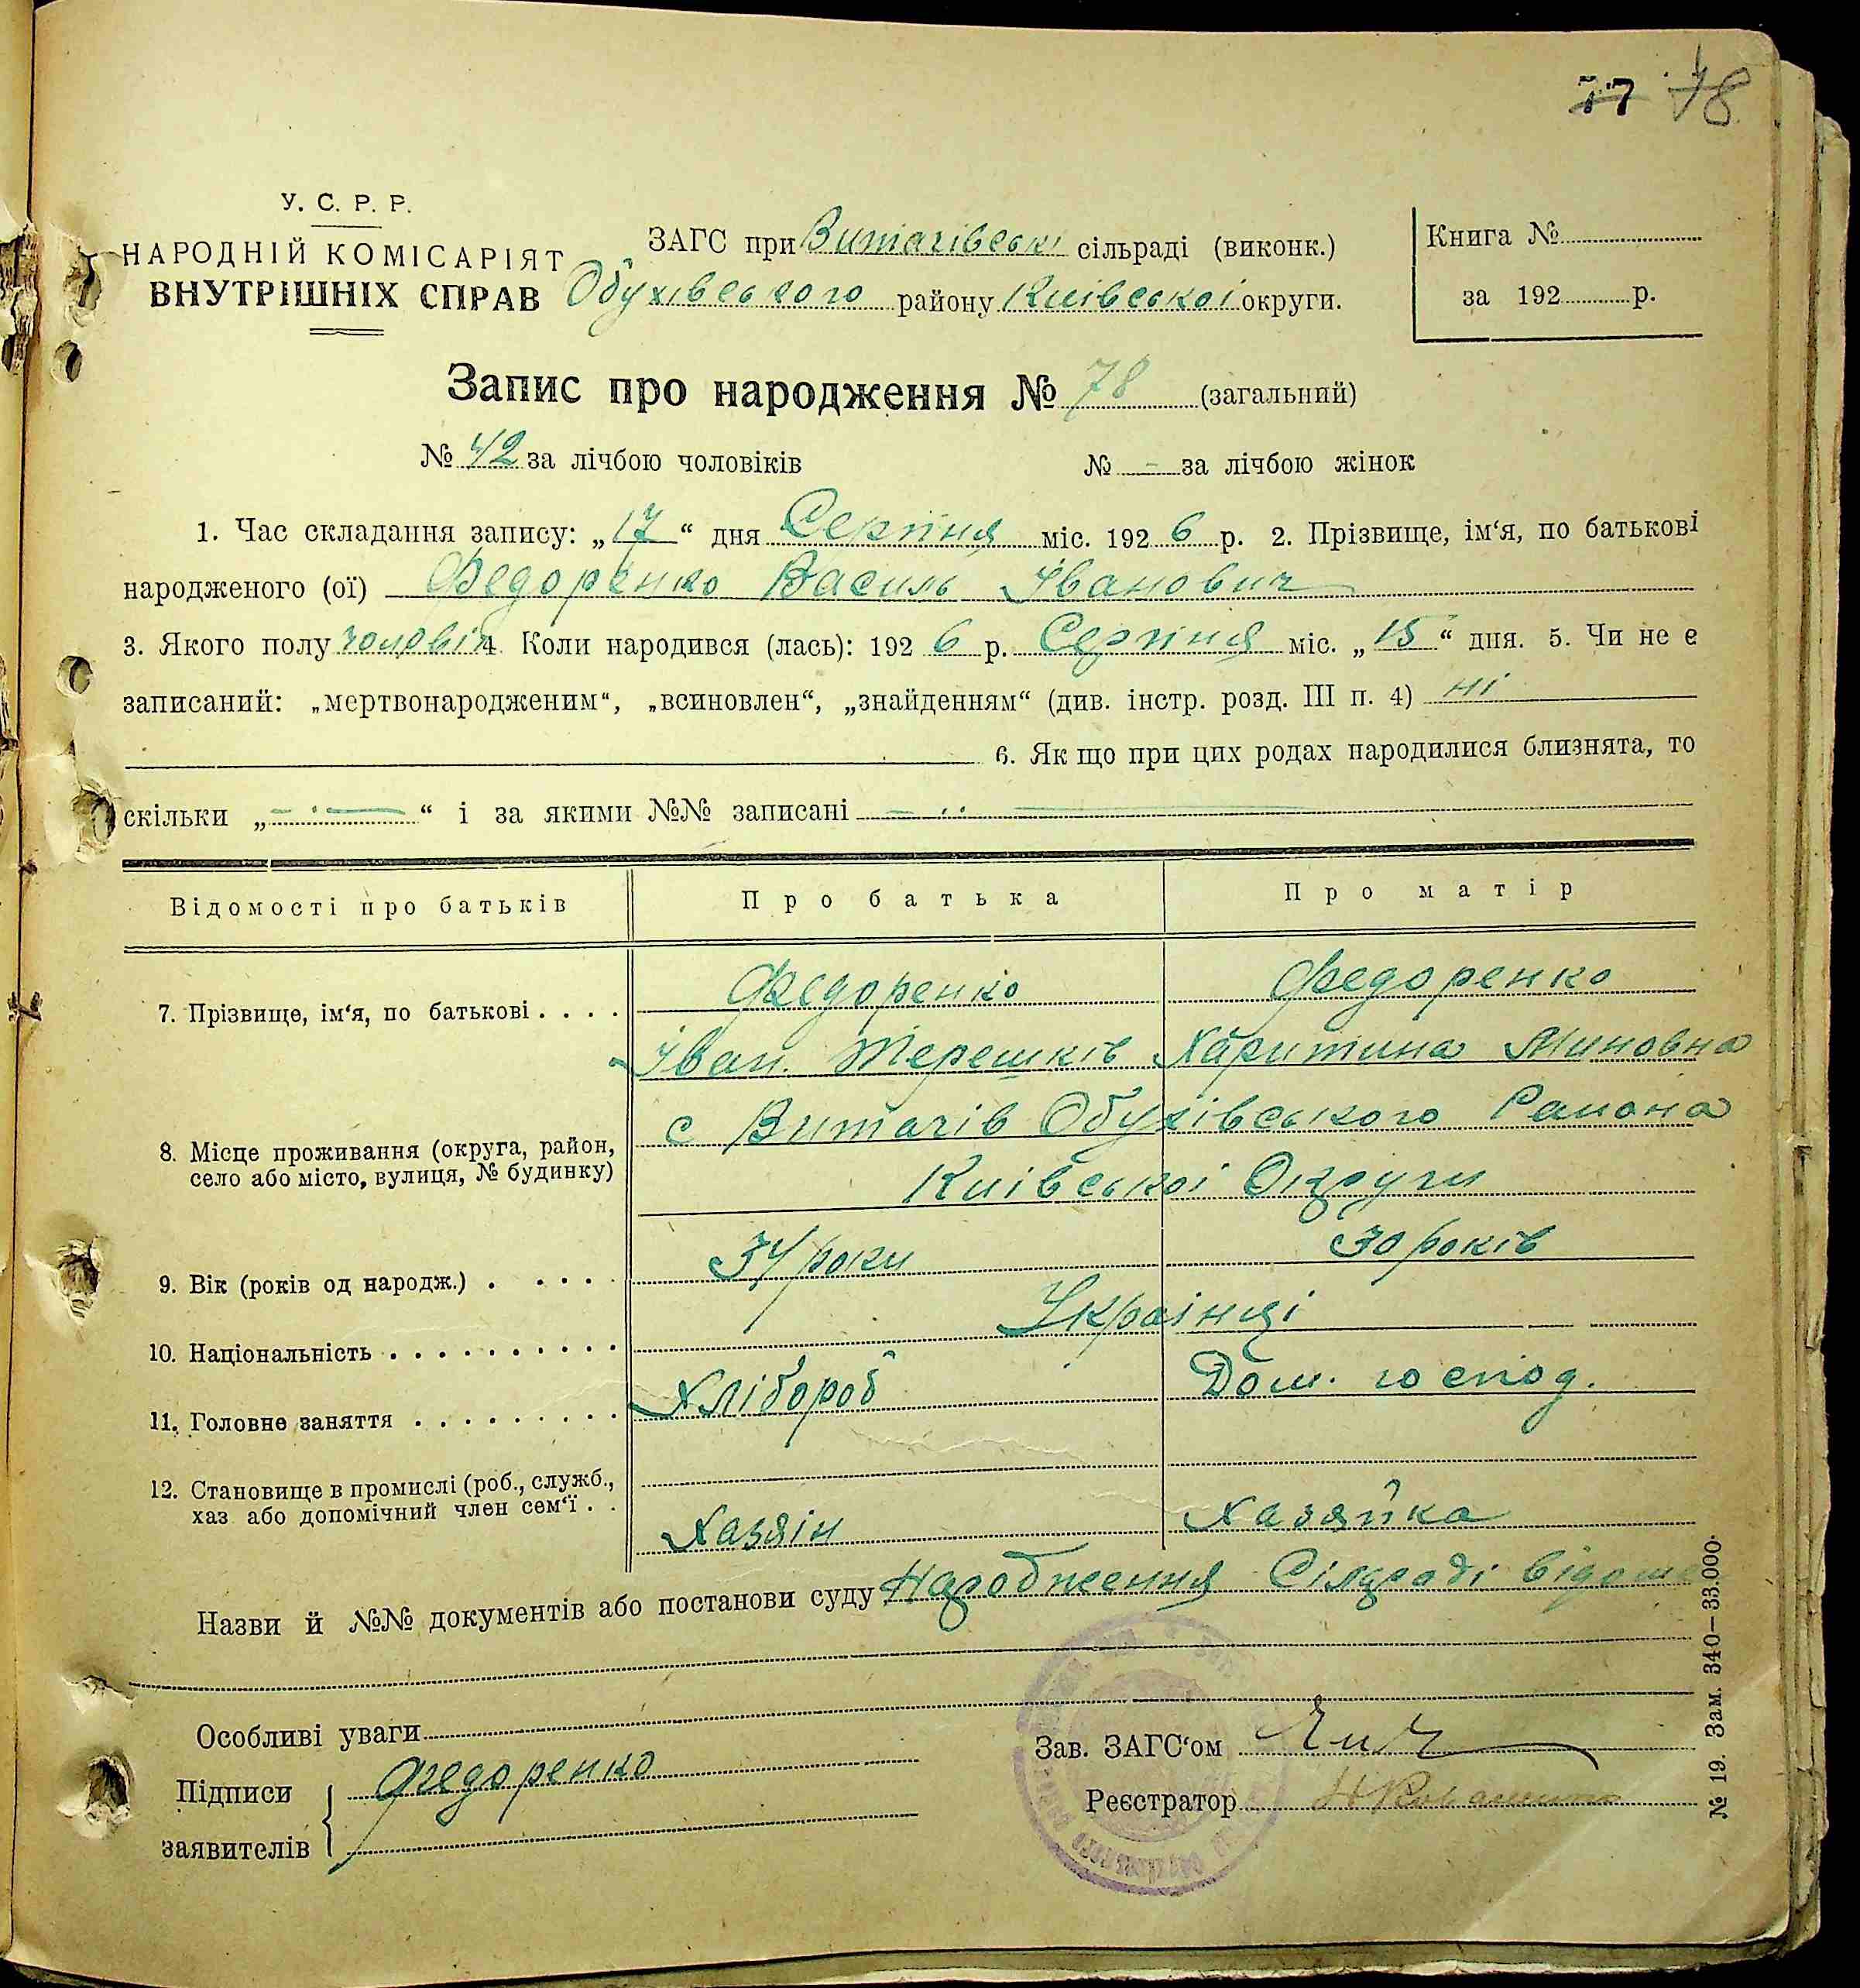 77 78
У. С. Р. Р.
НАРОДНІЙ КОМІСАРІЯТ
ВНУТРІШНІХ СПРАВ
ЗАГС при Витачівські сільраді (виконк.)
Обухівського району Київської округи.
Книга №
за 192 р.
Запис про народження № 78 (загальний)
№ 42 за лічбою чоловіків № - за лічбою жінок
1. Час складання запису: „17“ дня Серпня міс. 1926 р. 2. Прізвище, ім‘я, по батькові
народженого (ої) Федоренко Василь Іванович
3. Якого полу чоловіч 4. Коли народився (лась): 1926 р. Серпня міс. „15“ дня. 5. Чи не є
записаний: „мертвонародженим“, „всиновлен“, „знайденням“ (див. інстр. розд. III п. 4) ні
6. Як що при цих родах народилися близнята, то
скільки „ “ і за якими №№ записані
Відомості про батьків Про батька Про матір
7. Прізвище, ім‘я, по батькові . . . . Федоренко Федоренко
Іван. Терешків Харитина Миновна
8. Місце проживання (округа, район, село або місто, вулиця, № будинку) с Витачів Обухівського Раиона
Киівської Округи
9. Вік (років од народж.) . . . . . 34 роки 30 років
10. Національність . . . . . . . . . . Украінці
11. Головне заняття . . . . . . . . . Хлібороб Дом. господ.
12. Становище в промислі (роб., служб.,
хаз або допомічний член сем‘ї . . Хазяін Хазяйка
Назви й №№ документів або постанови суду Народження Сілраді
Особливі уваги
Підписи заявителів Федоренко
Зав. ЗАГС‘ом
Реєстратор
№ 19. Зам. 340—33.000.